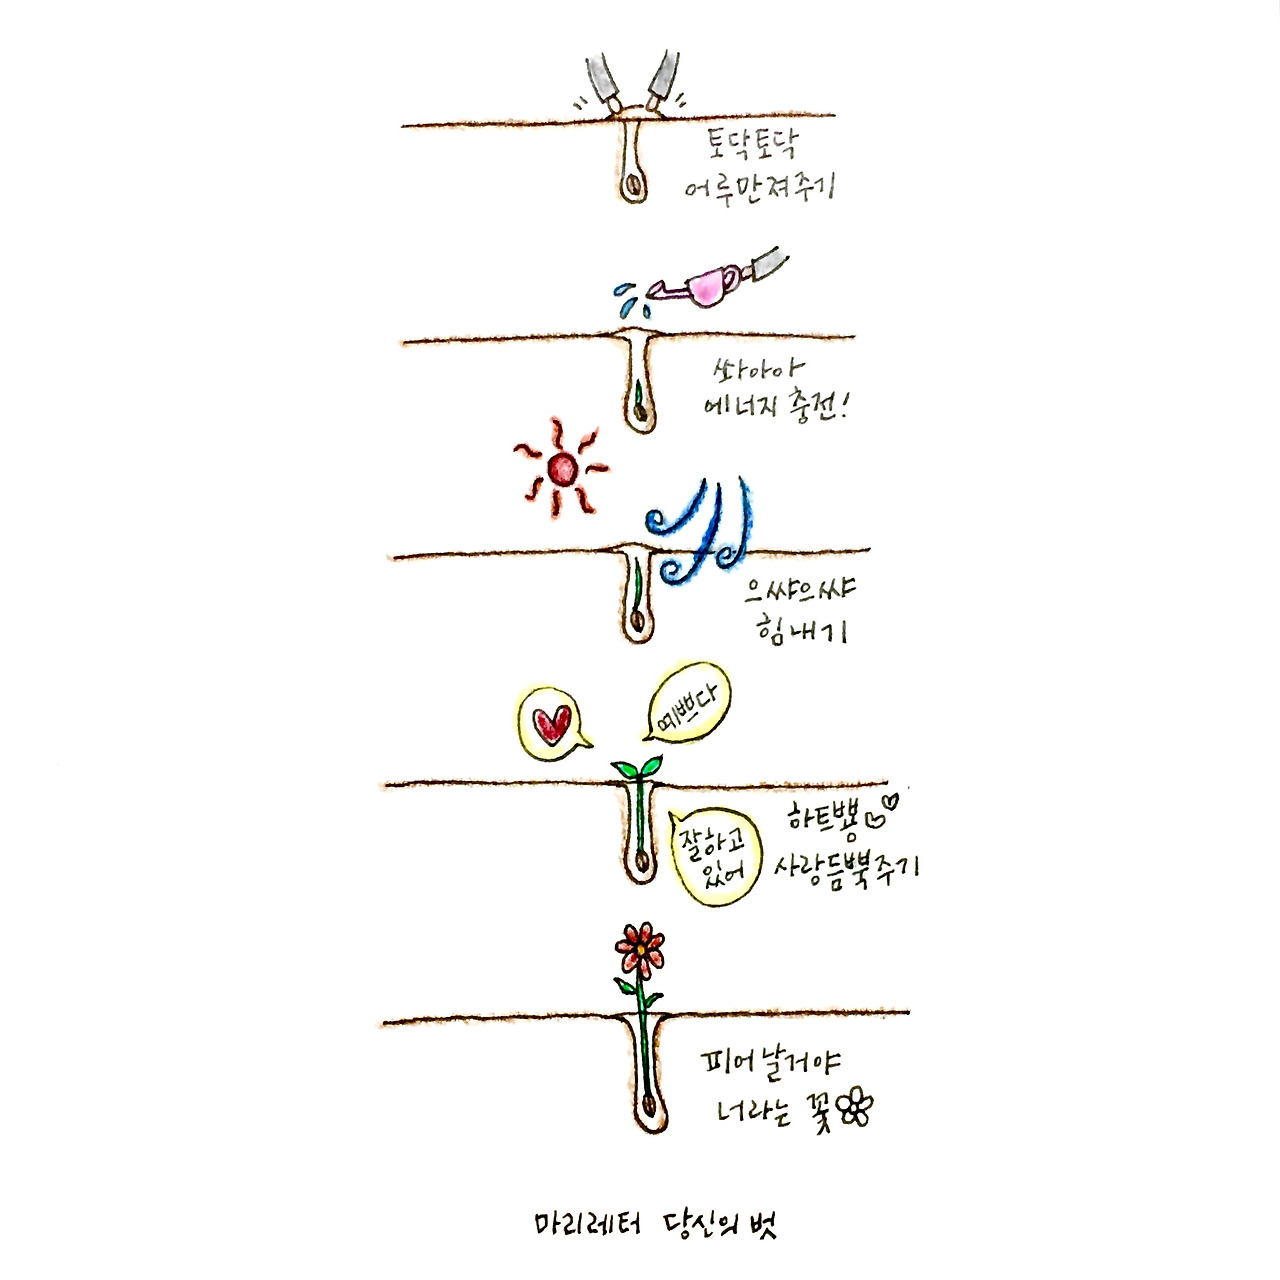 토닥토닥
어루만져주기
쏴아아
에너지 충전!
으쌰으쌰
힘내기
예쁘다
잘하고
있어
하트뿅
사랑듬뿍주기
피어날거야
너라는 꽃
마리레터 당신의 벗